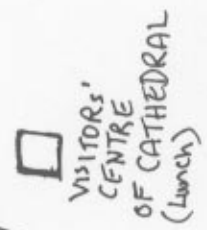 VISITORS'
CENTRE
OF CATHEDRAL
(Lunch)